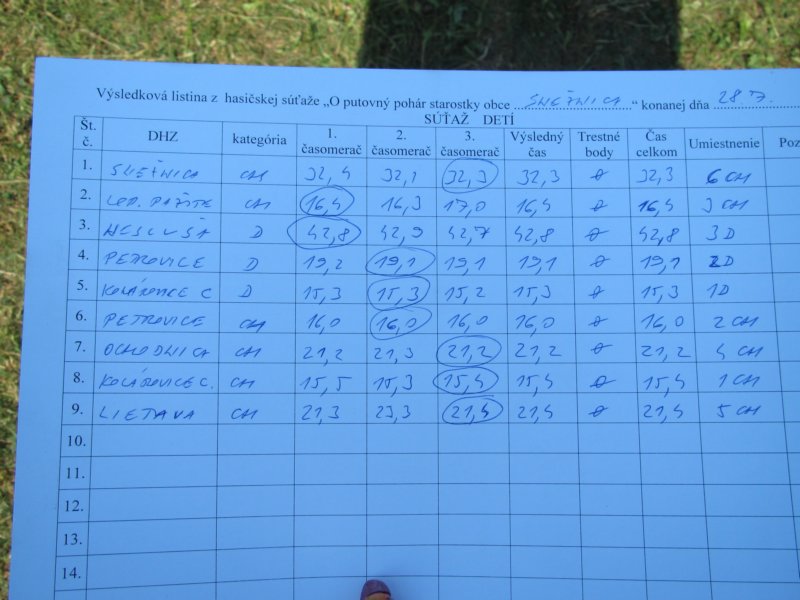 Výsledková listina z hasičskej súťaže „O putovný pohár starostky obce SNEŽNICA“ konanej dňa 28.7.
SÚŤAŽ DETÍ
Št. č. DHZ kategória 1. časomerač 2. časomerač 3. časomerač Výsledný čas Trestné body Čas celkom Umiestnenie Poz
1. SNEŽNICA CH 32,4 32,1 32,3 32,3 0 32,3 6 CH
2. CH 16,4 16,3 17,0 16,4 0 16,4 3 CH
3. NESLUŠA D 42,8 42,9 42,7 42,8 0 42,8 3 D
4. PETROVICE D 19,2 19,1 19,1 19,1 0 19,1 2D
5. KOLÁROVICE C D 15,3 15,3 15,2 15,3 0 15,3 1D
6. PETROVICE CH 16,0 16,0 16,0 16,0 0 16,0 2 CH
7. OCHODNICA CH 21,2 21,3 21,2 21,2 0 21,2 4 CH
8. KOLÁROVICE C. CH 15,5 15,3 15,4 15,4 0 15,4 1 CH
9. LIETAVA CH 21,3 23,3 21,4 21,4 0 21,4 5 CH
10.
11.
12.
13.
14.